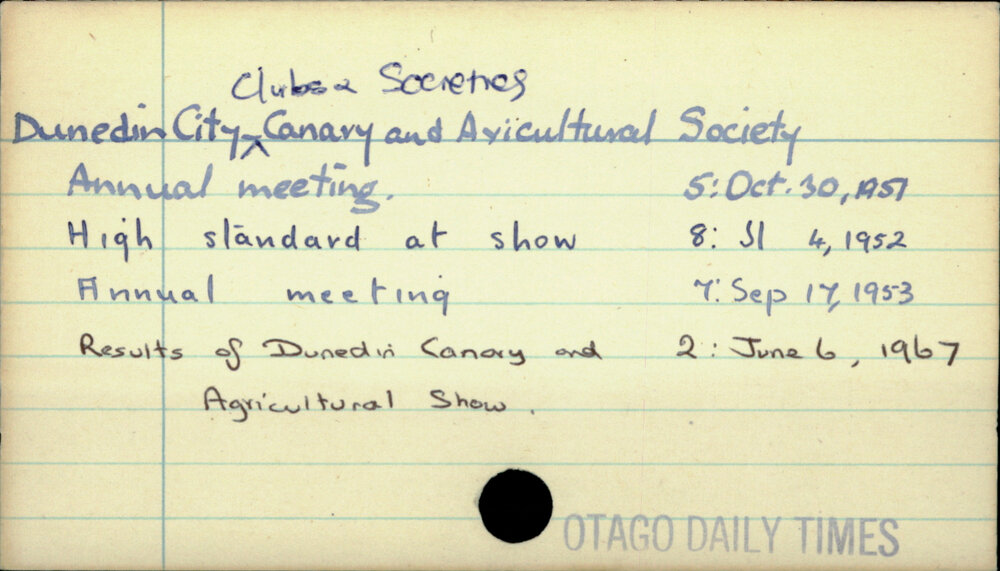 Clubs & Societies
Dunedin City ^ Canary and Avicultural Society
Annual meeting. 5: Oct. 30, 1951
High standard at show 8: Jl 4, 1952
Annual meeting 7: Sep 17, 1953
Results of Dunedin Canary and 2: June 6, 1967
Agricultural Show.
OTAGO DAILY TIMES